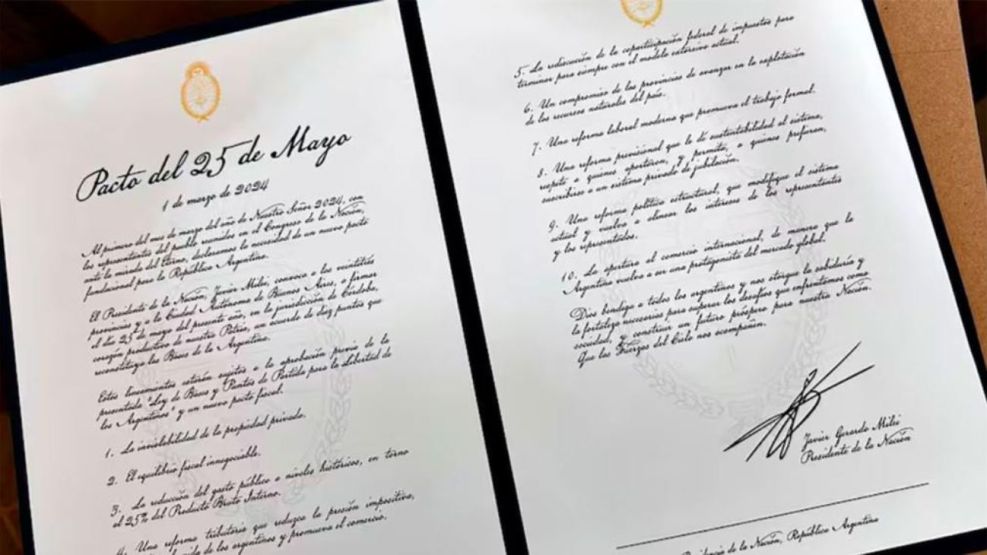 Pacto del 25 de Mayo
1 de marzo de 2024
Al primero del mes de marzo del año de Nuestro Señor 2024, con
los representantes del pueblo reunidos en el Congreso de la Nación,
ante la mirada del Eterno, declaramos la necesidad de un nuevo pacto
fundacional para la República Argentina.
El Presidente de la Nación, Javier Milei, convoca a las veintitrés
provincias y a la Ciudad Autónoma de Buenos Aires, a firmar
el día 25 de mayo del presente año, en la jurisdicción de Córdoba,
corazón productivo de nuestra Patria, un acuerdo de diez puntos que
reconstituya las Bases de la Argentina.
Estos lineamientos estarán sujetos a la aprobación previa de la
presentada "Ley de Bases y Puntos de Partida para la Libertad de
los Argentinos" y un nuevo pacto fiscal.
1. La inviolabilidad de la propiedad privada.
2. El equilibrio fiscal innegociable.
3. La reducción del gasto público a niveles históricos, en torno
al 25% del Producto Bruto Interno.
4. Una reforma tributaria que reduzca la presión impositiva,
vida de los argentinos y promueva el comercio.
5. La rediscusión de la coparticipación federal de impuestos para
terminar para siempre con el modelo extorsivo actual.
6. Un compromiso de las provincias de avanzar en la explotación
de los recursos naturales del país.
7. Una reforma laboral moderna que promueva el trabajo formal.
8. Una reforma previsional que le dé sustentabilidad al sistema,
respete a quienes aportaron, y permita, a quienes prefieran,
suscribirse a un sistema privado de jubilación.
9. Una reforma política estructural, que modifique el sistema
actual y vuelva a alinear los intereses de los representantes
y los representados.
10. La apertura al comercio internacional, de manera que la
Argentina vuelva a ser una protagonista del mercado global.
Dios bendiga a todos los argentinos y nos otorgue la sabiduría y
la fortaleza necesarias para superar los desafíos que enfrentamos como
sociedad, y construir un futuro próspero para nuestra Nación.
Que las Fuerzas del Cielo nos acompañen.
Javier Gerardo Milei
Presidente de la Nación
Presidencia de la Nación, República Argentina